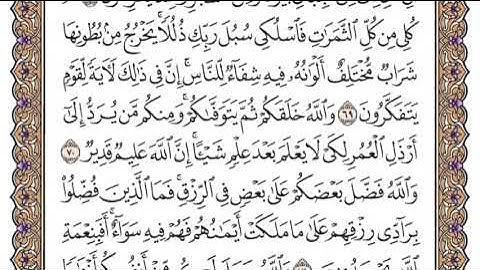 كُلِى مِن كُلِّ ٱلثَّمَرَٰتِ فَٱسْلُكِى سُبُلَ رَبِّكِ ذُلُلًا ۚ يَخْرُجُ مِنۢ بُطُونِهَا
شَرَابٌ مُّخْتَلِفٌ أَلْوَٰنُهُۥ فِيهِ شِفَآءٌ لِّلنَّاسِ ۗ إِنَّ فِى ذَٰلِكَ لَـَٔايَةً لِّقَوْمٍ
يَتَفَكَّرُونَ ٦٩ وَٱللَّهُ خَلَقَكُمْ ثُمَّ يَتَوَفَّىٰكُمْ ۚ وَمِنكُم مَّن يُرَدُّ إِلَىٰٓ
أَرْذَلِ ٱلْعُمُرِ لِكَىْ لَا يَعْلَمَ بَعْدَ عِلْمٍ شَيْـًٔا ۚ إِنَّ ٱللَّهَ عَلِيمٌ قَدِيرٌ ٧٠
وَٱللَّهُ فَضَّلَ بَعْضَكُمْ عَلَىٰ بَعْضٍ فِى ٱلرِّزْقِ ۚ فَمَا ٱلَّذِينَ فُضِّلُوا۟
بِرَآدِّى رِزْقِهِمْ عَلَىٰ مَا مَلَكَتْ أَيْمَٰنُهُمْ فَهُمْ فِيهِ سَوَآءٌ ۚ أَفَبِنِعْمَةِ